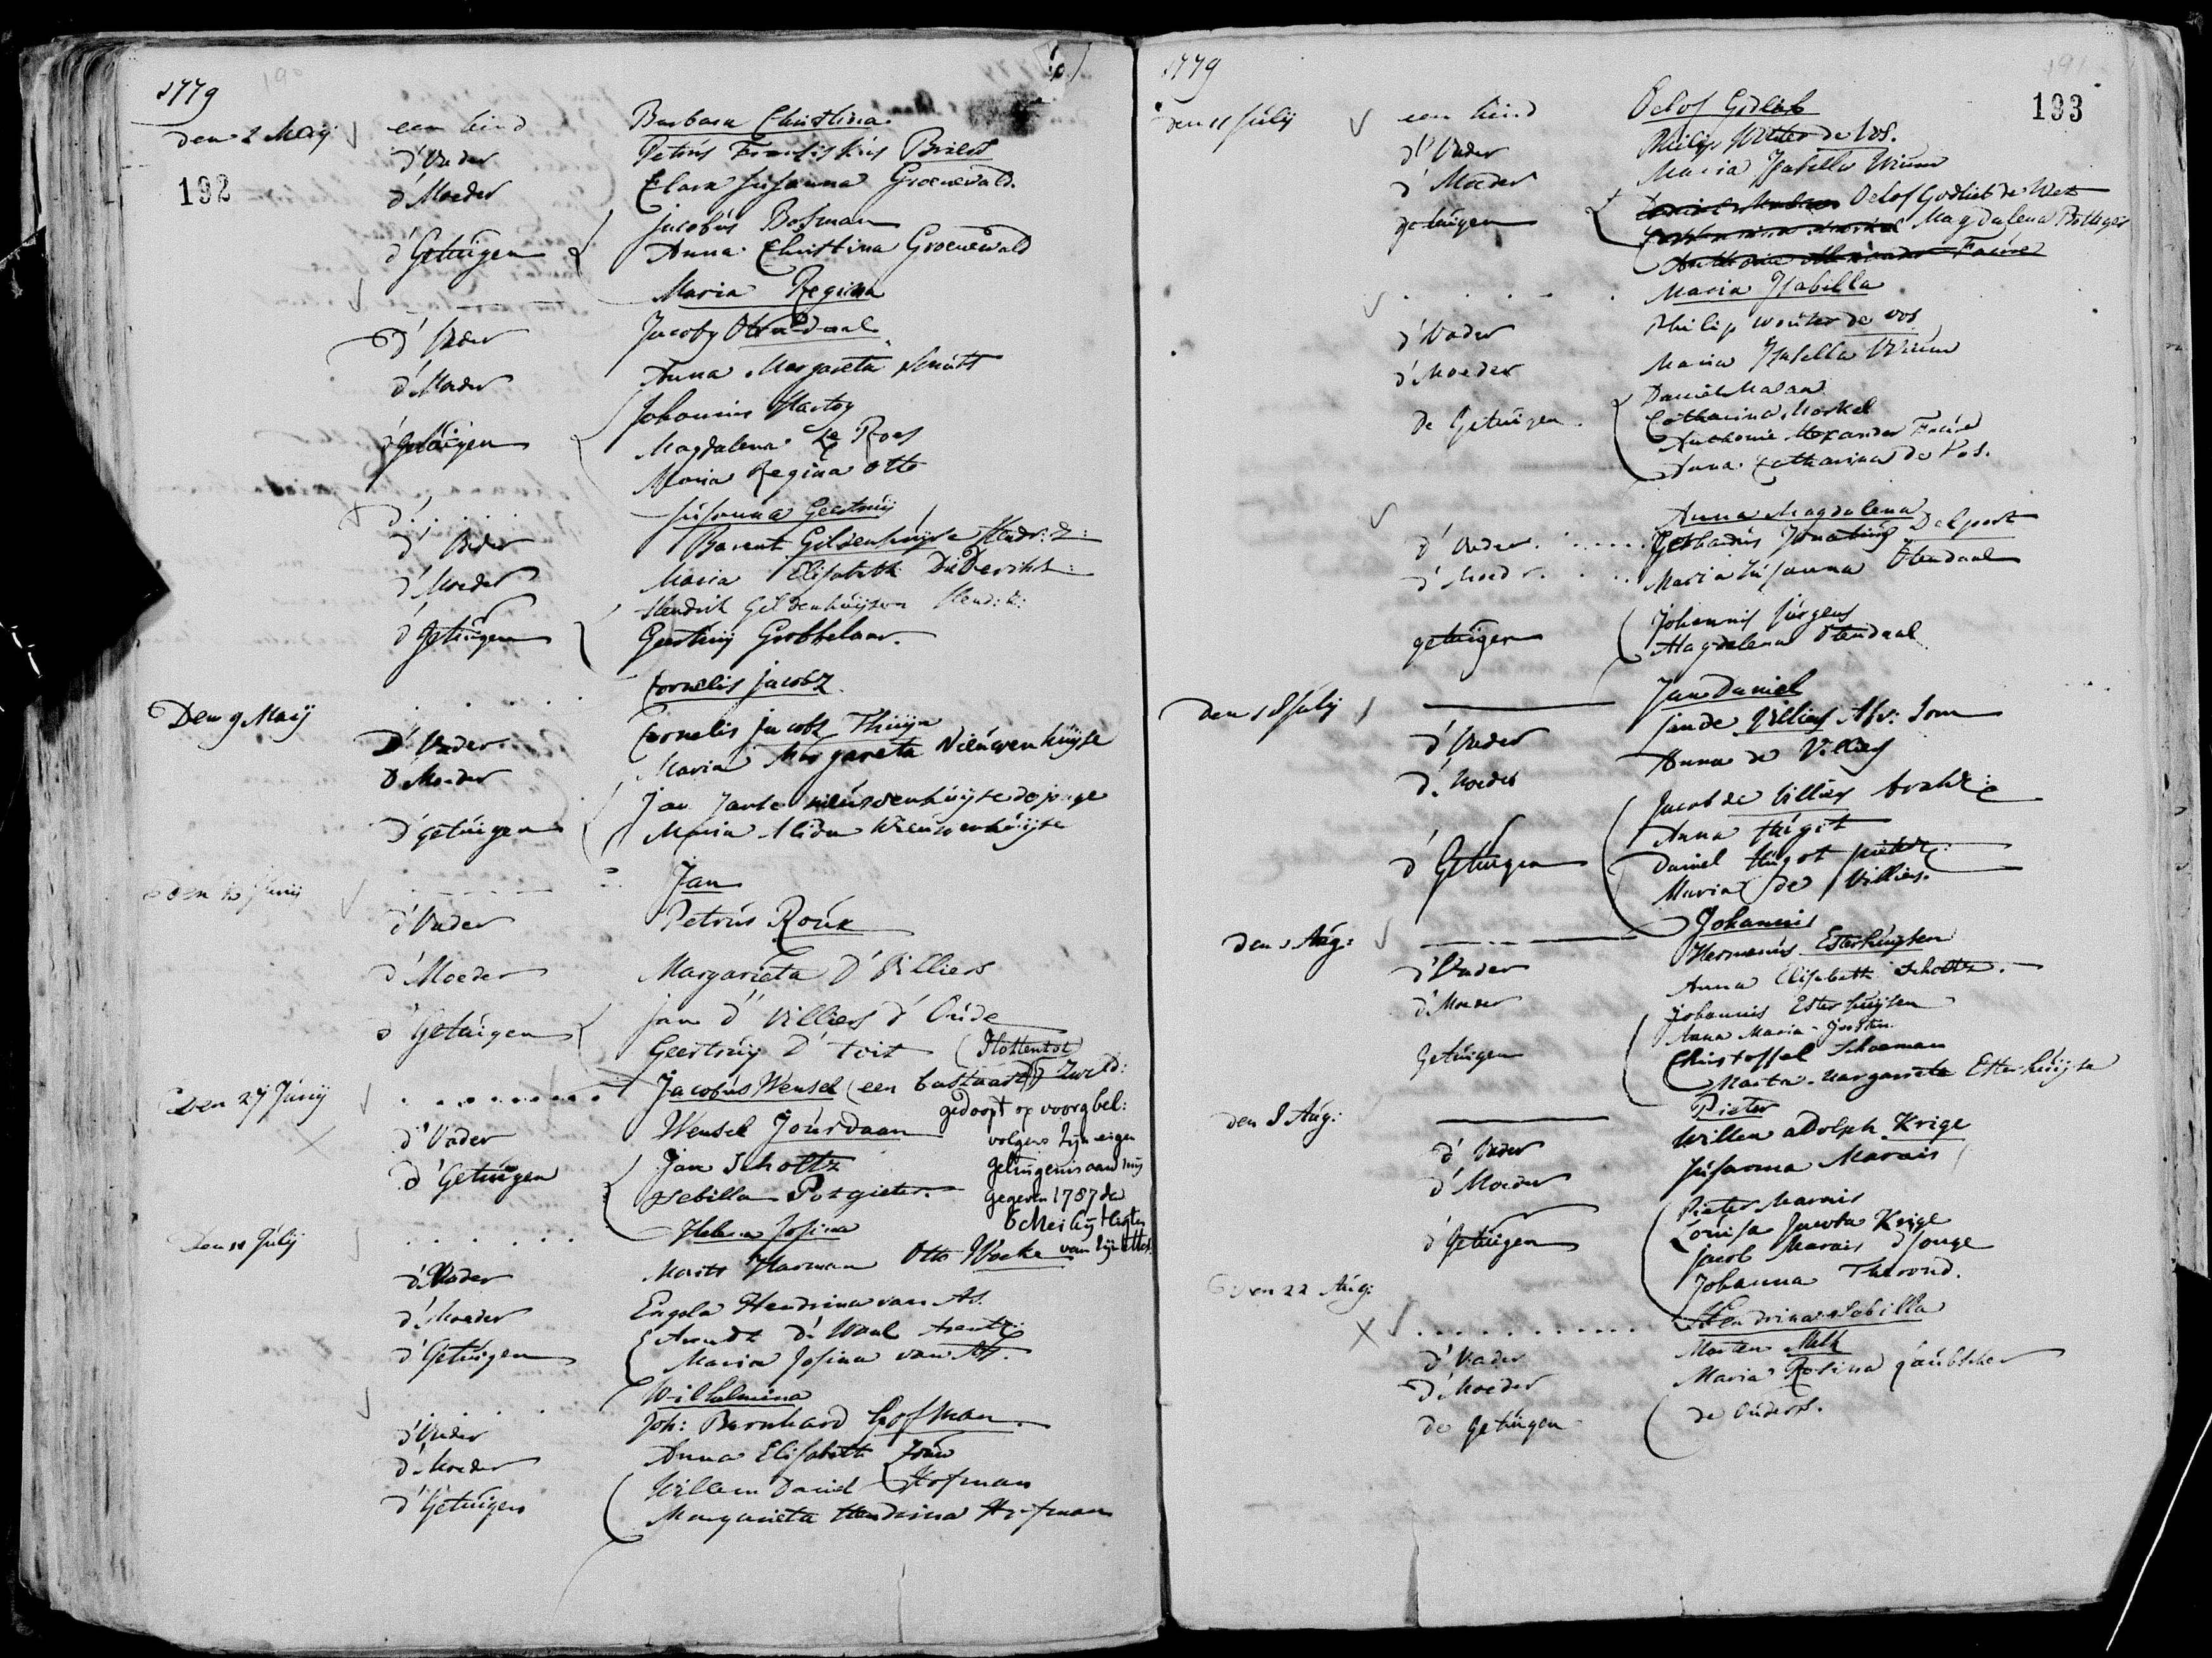 1779
den 2 Meij een kind Barbara Christina
192
d'Vader Petrús Fransiskús Briest
d'Moeder Clara Súsanna Groenewald.
d'Getúigen Jacobús Bosman
Anna Christina Groenewald
Maria Regina
d'Vader Jacobs Otendaal
d'Moeder Anna Margareta Smitt
d'Getúigen Johannis Hartog
Magdalena Le Roes
Maria Regina Otto
d' Súsanna Geertrúij
d'Vader Barent Gildenhúijse Hendr: Z:
d'Moeder Maria Elisabeth Diederikt:
d'Getúigen Hendrik Gildenhúijsen Hend: z:
Geertrúij Grobbelaar.
Den 9 Maij Cornelis Jacobz
D'Vader Cornelis Jacobz Thúijn
D'Moeder Maria Margareta Nieúwenhúijse
d'getúigen Jan Jarle nieúwenhúijse de jonge
Maria Alida Nieúwenhúijse
Jan
d'Vader Petrús Roúx
d'Moeder Margarieta D'Villiers
d'Getúigen Jan d'Villiers d'Oúde
Geertrúij D'toit (Hottentot)
Den 27 Júnij Jacobús Wensel (een bastaard
d'Vader Wensel Joúrdaan gedoopt op voorg bel:
volgens zijn eigen
d'Getúigen Jan Scholtz getúigenis aan mij
Sebilla Potgieter. gegeven 1787 de
Den 11 Júlij Helena Josina
d'Vader Morits Harman Otto Woeke
d'Moeder Engela Hendrina van As.
d'Getúigen Arendt d'Waal Arentz:
Maria Josina van As.
Wilhelmina
d'Vader Joh: Bernhard Hofman
d'Moeder Anna Elisabeth Loúw
d'Getúigen Willem David Hofman
Margarieta Hendrina Hofman
1779
193
den 11 Júlij een kind Oelof Godlieb
d'Vader Philip Wouter de Vos.
d'Moeder Maria Isabella Wium
getúigen Oelof Godlieb de Wet
Magdalena Bottiger
Anthonie Alexander Faúre
Maria Isabella
d'Vader Philip Woúter de vos
d'Moeder Maria Isabella Wiúm
De Getúigen Daniel Malan
Catharina Morkel
Anthonie Alexander Faúre
Anna Catharina de Vos.
Anna Magdalena
d'Vader Gerhardús Jonathús Delport
d'Moeder Maria Súsanna Otendaal
getúigen Johannis Júrgens
Magdalena Otendaal
Den 18 Júlij Jan Daniel
d'Vader Jan de Villiers Abr: Soon
d'Moeder Anna de Villiers
d'Getúigen Jacob de Villiers Abrahz:
Anna Húgot
Daniel Húgot Pieterz:
Maria de Villiers.
Den 1 Aúg: Johannis
d'Vader Hermanús Esterhúijsen
d'Moeder Anna Elisabeth Scholtz.
Getúigen Johannis Esterhúijsen
Anna Maria Josten
Christoffel Schoeman
Marta Margarieta Esterhúijse
den 8 Aúg: Pieter
d'Vader Willem Adolph Krige
d'Moeder Súsanna Marais
d'Getúigen Pieter Marais
Loúisa Jacoba Krige
Jacob Marais d'Jonge
Johanna Therond.
Den 22 Aúg: Hendrina Sabilla
d'Vader Marten Melk
d'Moeder Maria Rosina Gaúbscher
de Getúigen de Oúders.